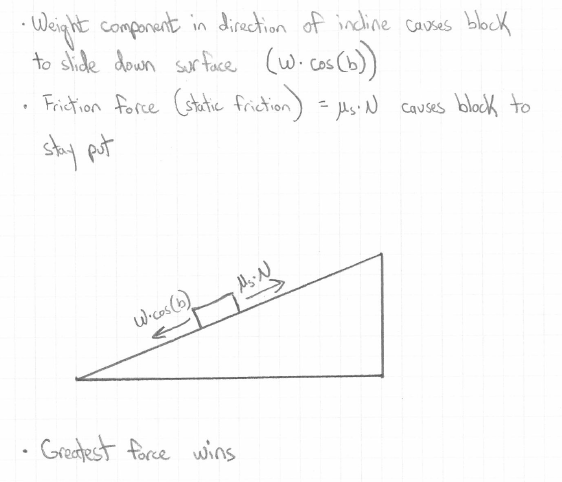 · Weight component in direction of incline causes block
to slide down surface (W·cos(b))
· Friction force (static friction) = μs·N causes block to
stay put
μs·N
W·cos(b)
· Greatest force wins